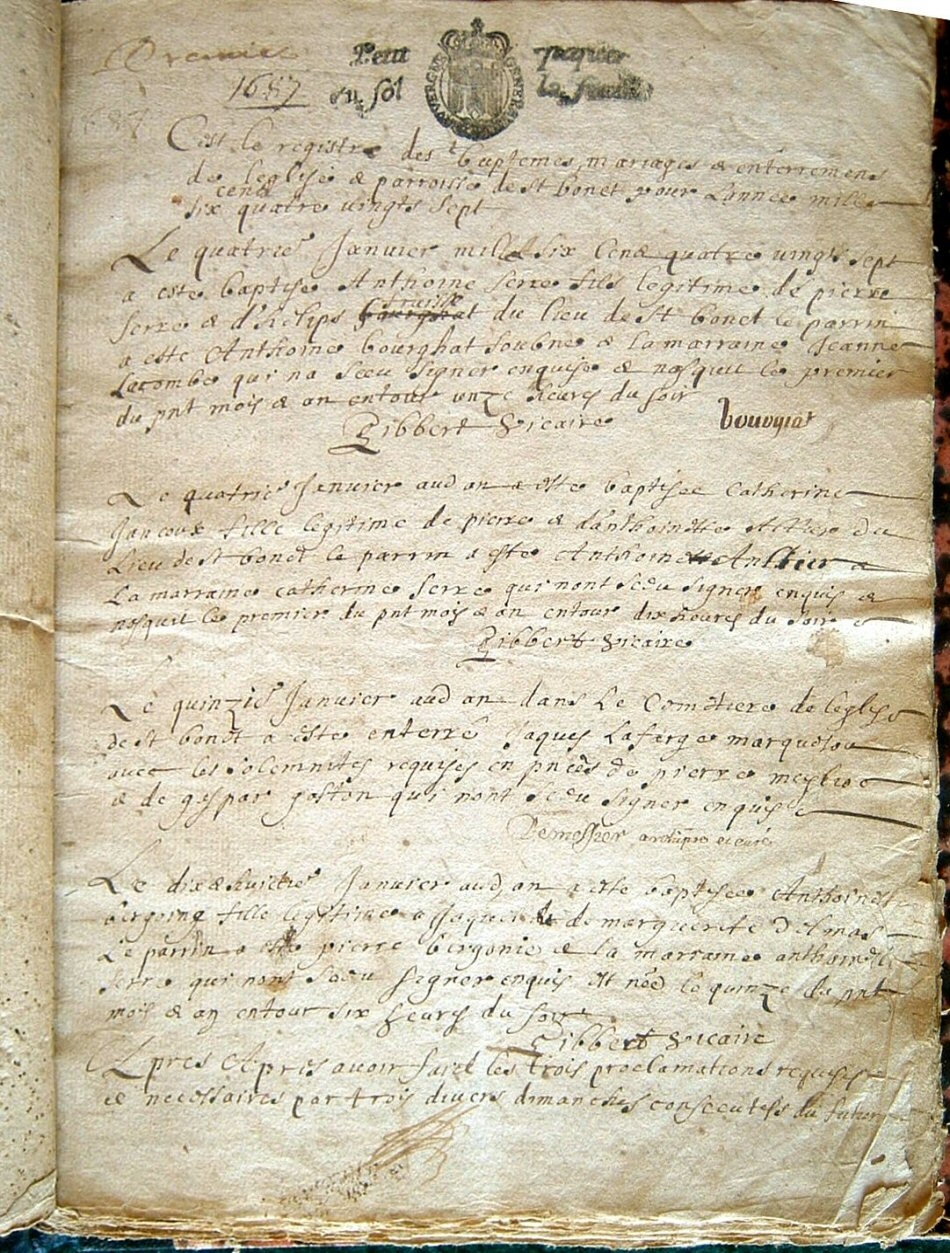 Premier
1687
Petit papier
un sol la feuille
AUVERGNE GENERA
C'est le registre des baptemes mariages & enterremens
de leglise & parroisse de st bonet pour Lannee mille
six cens quatre vingts sept
Le quatrie Janvier mille six Cens quatre vingts sept
a este baptise Anthoine serre fils legitime de pierre
serre & d' du lieu de st bonet le parrin
fraisse
a este Anthoine bourghat & la marraine Jeanne
Lacombe qui na sceu signer enquise & nasquit le premier
du pnt mois & an entour unze heures du soir
Gibbert vicaire
Le quatrie Janvier aud an a este baptisee Catherine
fille legitime de pierre & danthoinette du
Lieu de st bonet le parrin a este &
La marraine catherine serre qui nont sceu signer enquis &
nasquit le premier du pnt mois & an entour dix heures du soir
Gibbert vicaire
Le quinzie Janvier aud an dans Le Cemetiere de leglise
de st bonet a este enterré Jaques Lafarge
avec les solemnites requises en pnces de pierre
& de gaspar goston qui nont sceu signer enquis
Demessier archipre et curé
Le dix & huictie Janvier aud an a este baptisee Anthoinette
bergoing fille legitime a Jaques & de marguerite delmas
Le parrin a este pierre bergonie & la marraine anthoinette
serre qui nont sceu signer enquis et née le quinze du pnt
mois & an entour six heures du soir
Gibbert vicaire
Apres Apres avoir faict les trois proclamations requises
& necessaires par trois divers dimanches consecutifs du futur